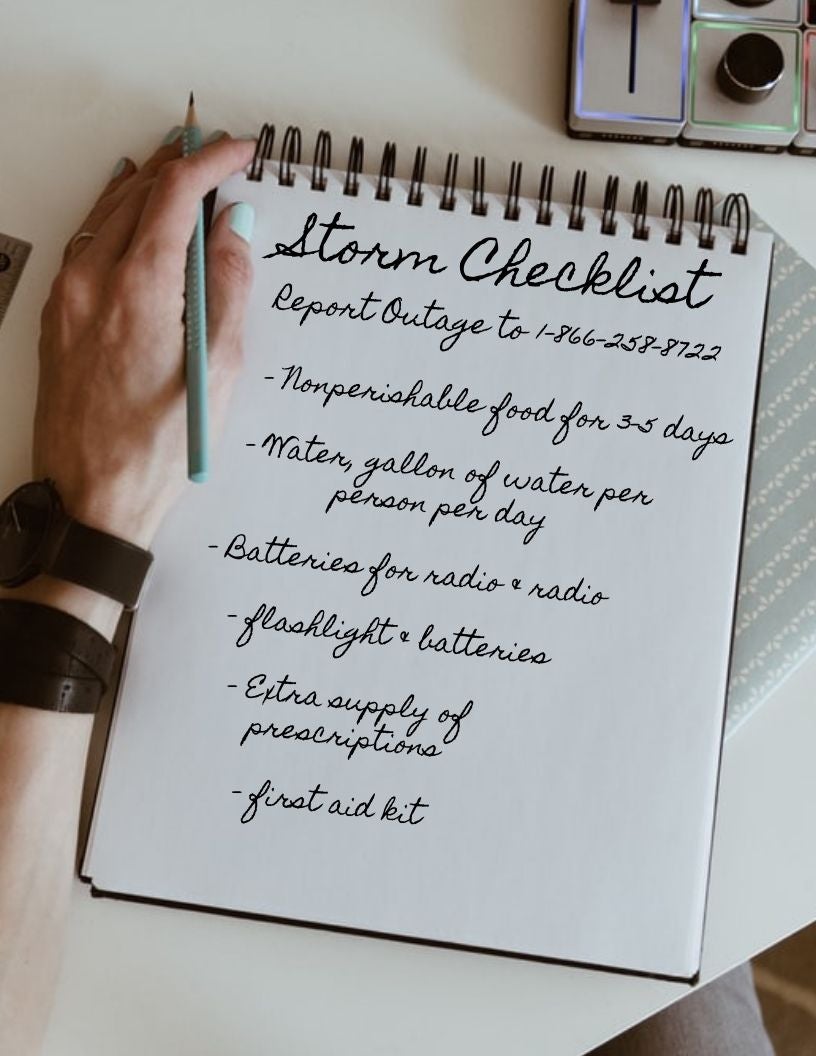 Storm Checklist
Report Outage to 1-866-258-8722
- Nonperishable food for 3-5 days
- Water, gallon of water per
person per day
- Batteries for radio & radio
- flashlight & batteries
- Extra supply of
prescriptions
- first aid kit